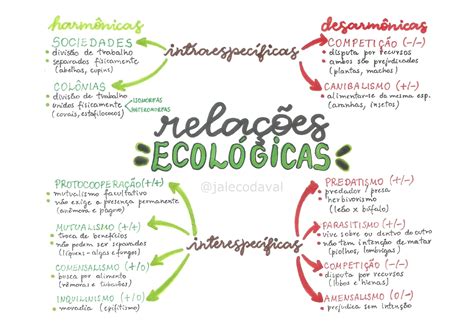 harmônicas
SOCIEDADES
• divisão de trabalho
• separados fisicamente
(abelhas, cupins)
COLÔNIAS
• divisão de trabalho
• unidos fisicamente
(corais, estafilococos)
ISOMORFAS
HETEROMORFAS
intraespecíficas
desarmônicas
COMPETIÇÃO (-/-)
• disputa por recursos
• ambos são prejudicados
(plantas, machos)
CANIBALISMO (+/-)
• alimentar-se da mesma esp.
(aranhas, insetos)
relações
ECOLÓGICAS
@jalecodaval
PROTOCOOPERAÇÃO (+/+)
• mutualismo facultativo
• não exige a presença permanente
(anêmona e paguro)
MUTUALISMO (+/+)
• troca de benefícios
• não podem ser separados
(líquens - algas e fungos)
COMENSALISMO (+/0)
• busca por alimento
(rêmoras e tubarões)
INQUILINISMO (+/0)
• moradia (epifitismo)
interespecíficas
PREDATISMO (+/-)
• predador / presa
• herbivorismo
(leão x búfalo)
PARASITISMO (+/-)
• vive sobre ou dentro do outro
• não tem intenção de matar
(piolhos, lombrigas)
COMPETIÇÃO (-/-)
• disputa por recursos
(lobos e hienas)
AMENSALISMO (0/-)
• prejudica sem intenção